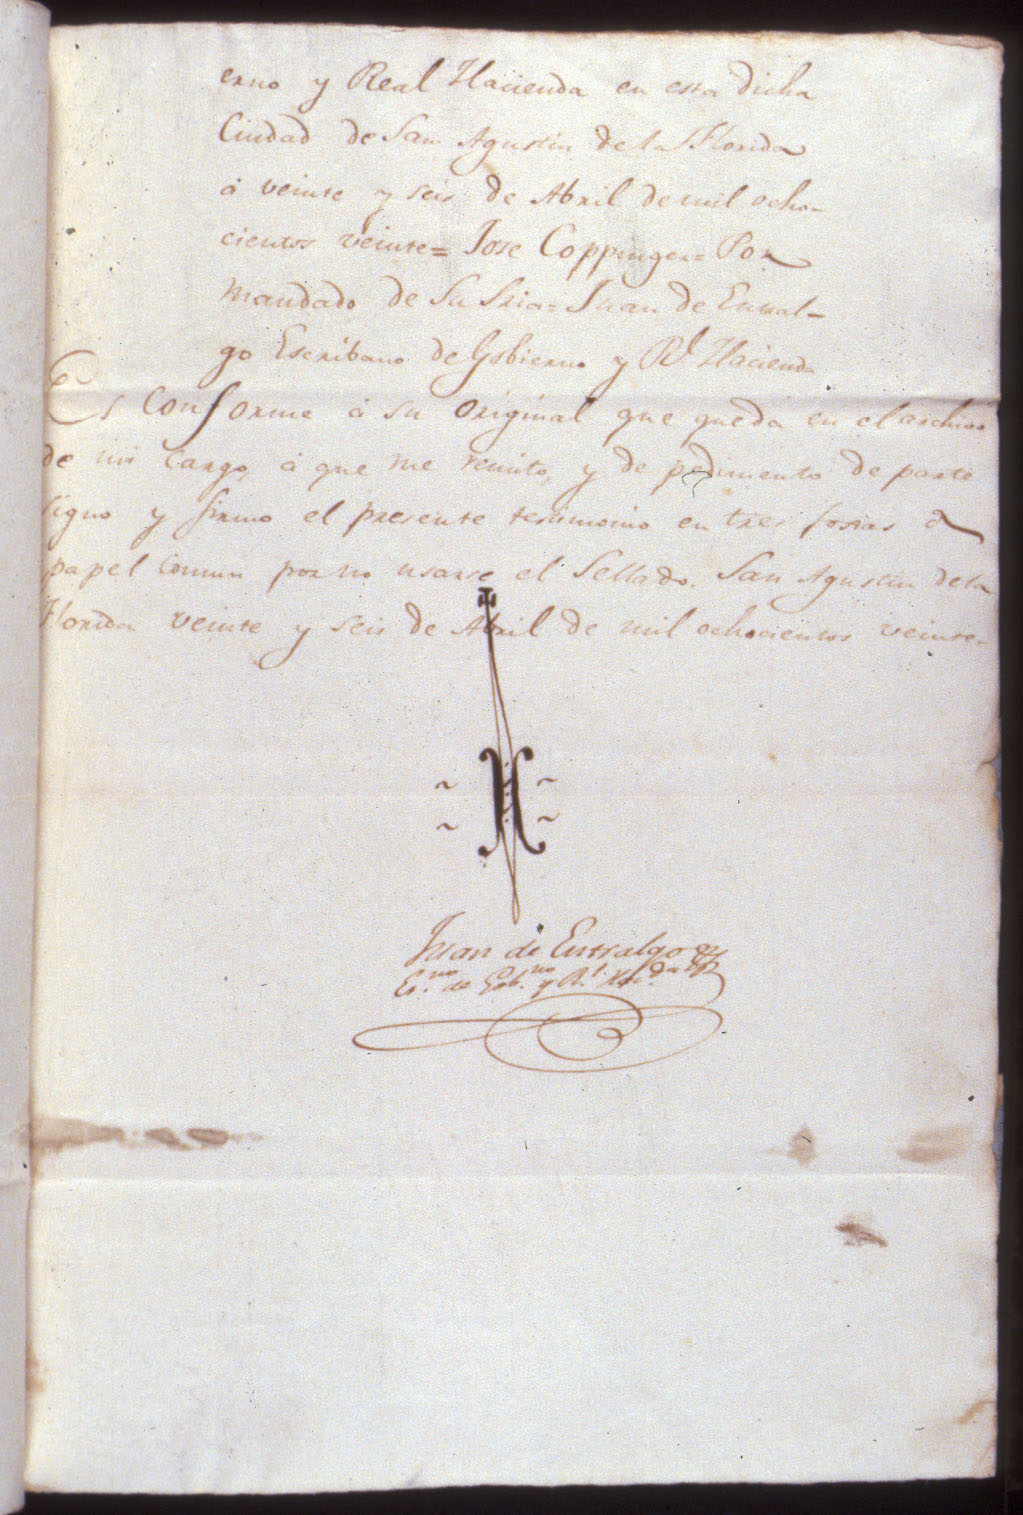 erno y Real Hacienda en esta dicha
Ciudad de San Agustin de la Florida
á veinte y seis de Abril de mil ocho-
cientos veinte= Jose Coppinger= Por
mandado de Su Sria= Juan de Entral-
go Escribano de Gobierno y Rl. Hacienda
Es Conforme á su original que queda en el archivo
de mi cargo, á que me remito, y de pedimento de parte
signo y firmo el presente testimonio en tres fojas d
papel comun por no usarse el Sellado. San Agustin de la
Florida veinte y seis de Abril de mil ochocientos veinte-
Juan de Entralgo
Es.no de Gob.no y R.l Haz.da